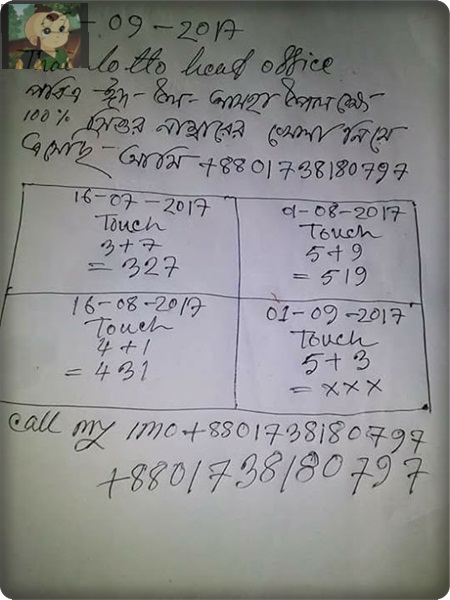 - 09 - 2017
Thai lotto head office
পবিত্র ঈদ-
100% নাম্বারের খেলা নিয়ে
এসেছি - আমি +8801738180797
16-07-2017
Touch
3+7
= 327
01-08-2017
Touch
5+9
= 519
16-08-2017
Touch
4+1
= 431
01-09-2017
Touch
5+3
= xxx
call my imo +8801738180797
+8801738180797